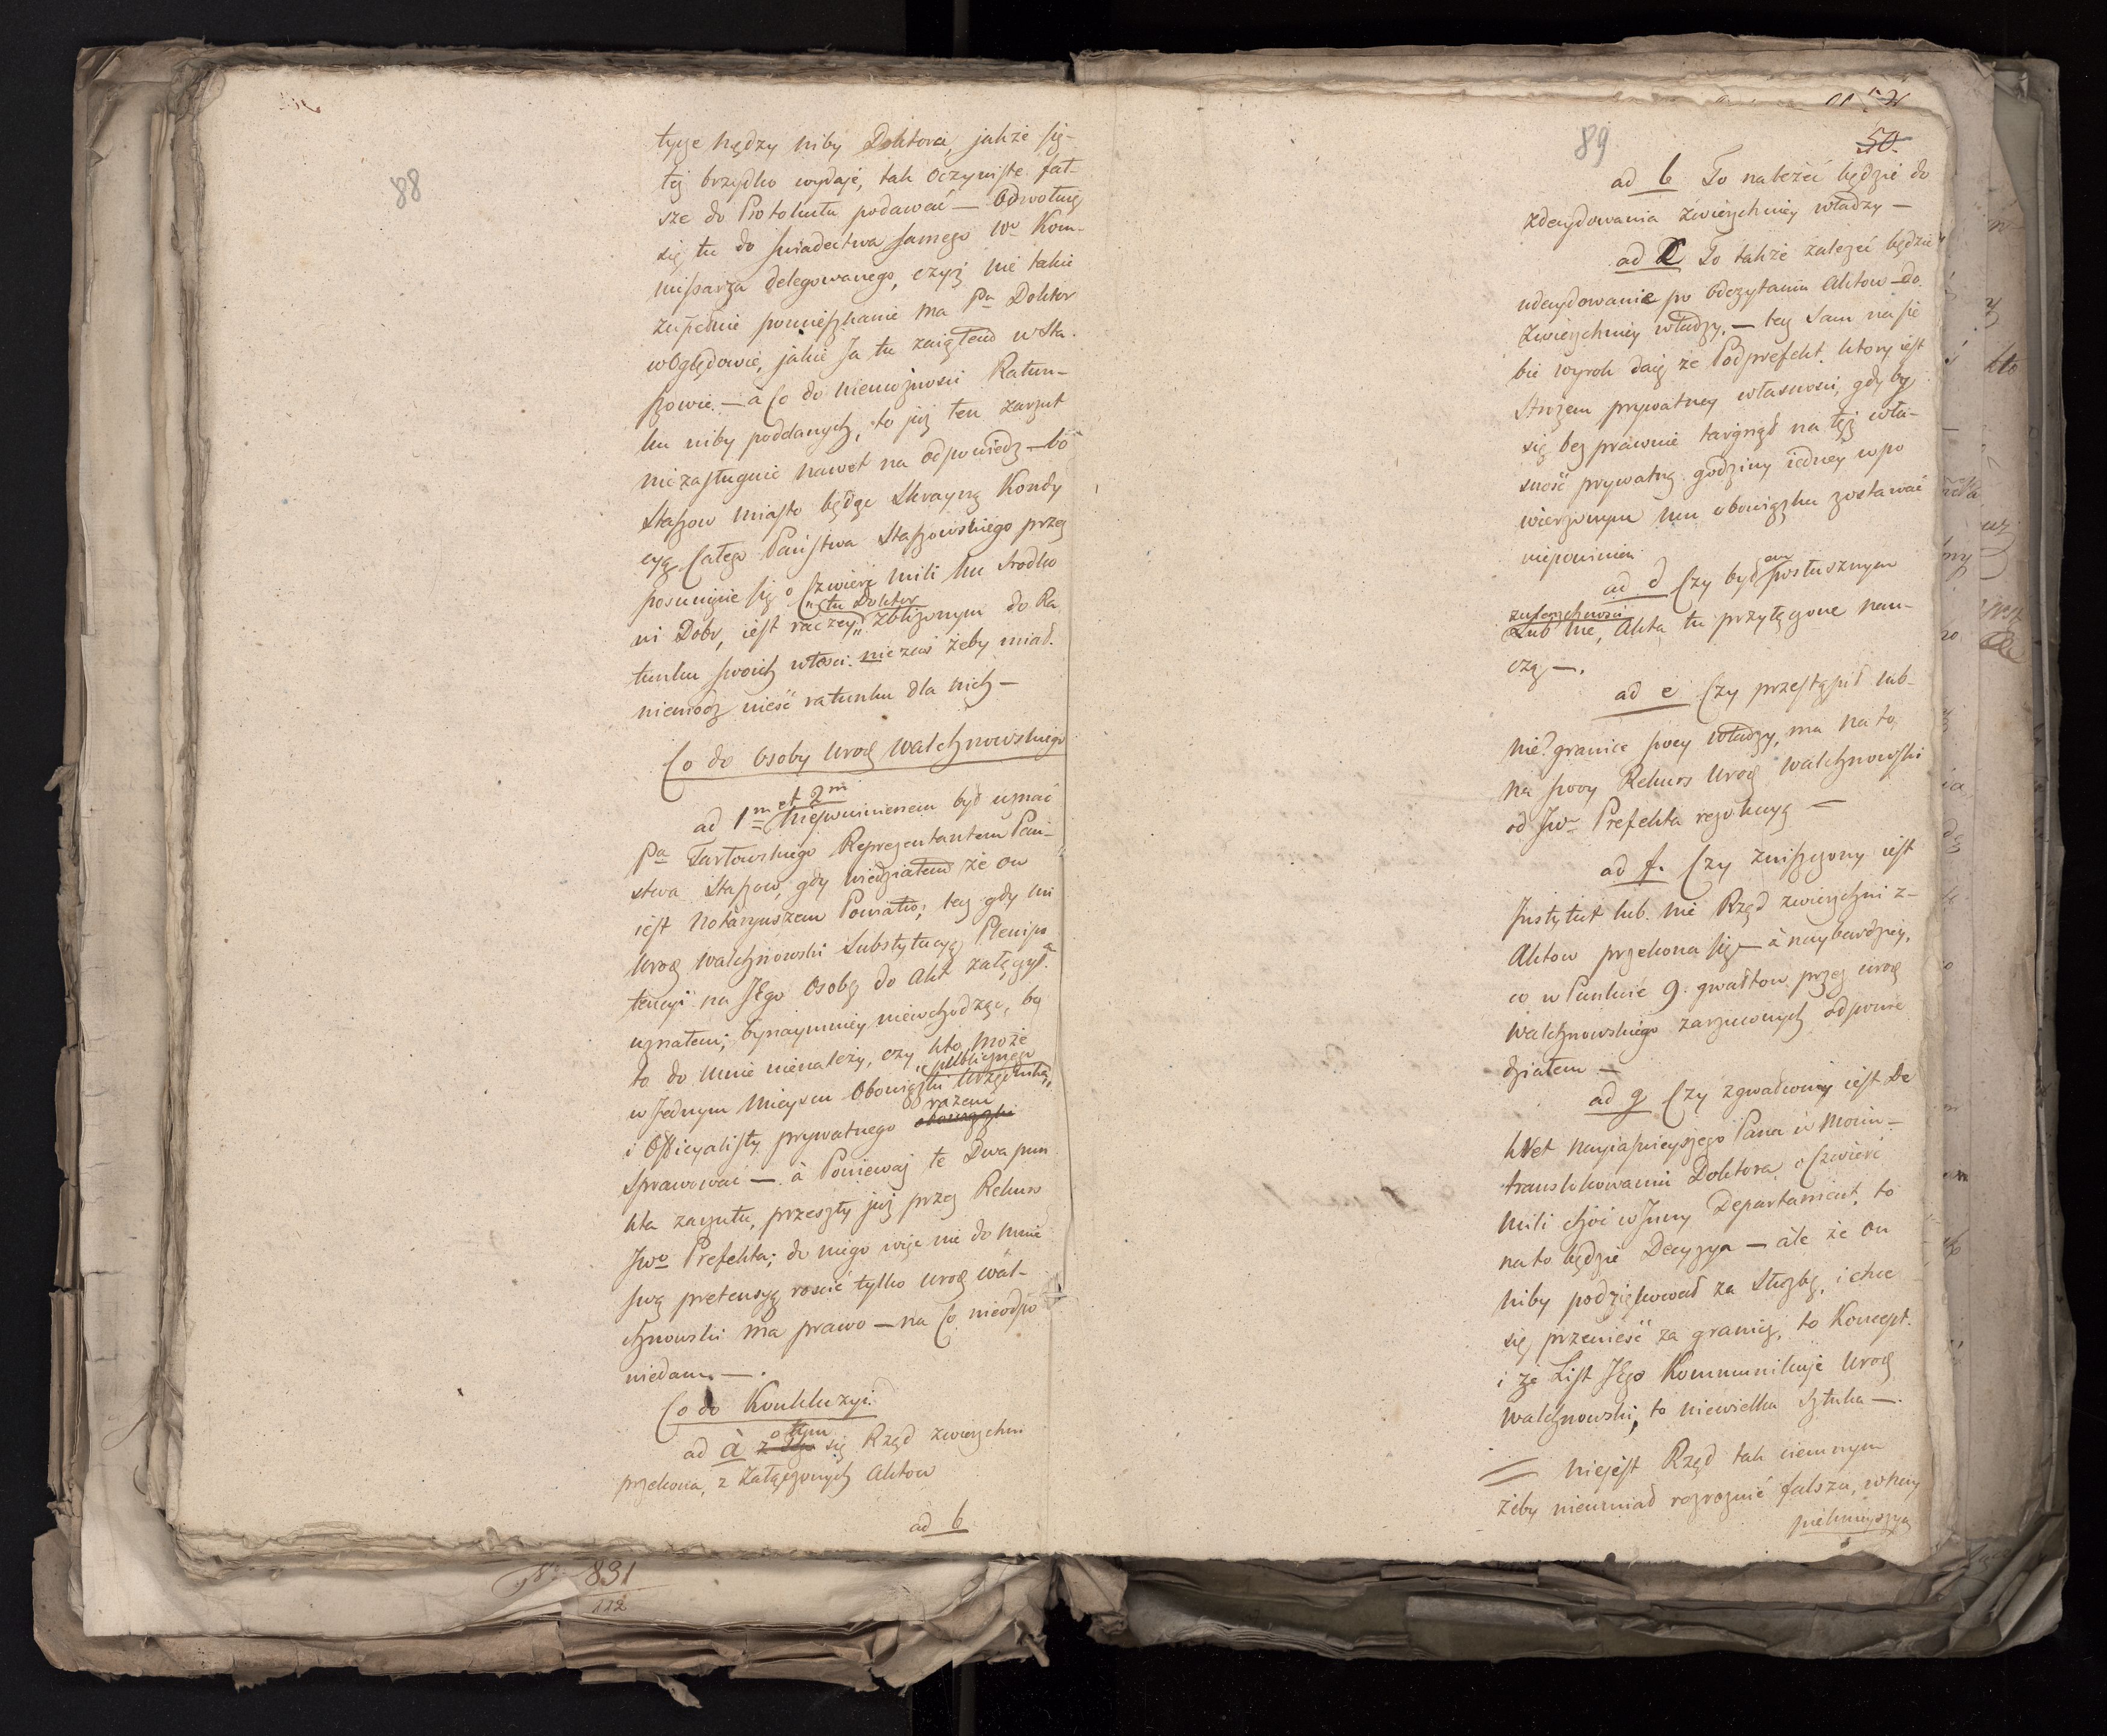 88
tyże nędzy niby Doktora, jakże się
tej brzydko wydaje, tak oczywiste fał-
sze do Protokułu podawać — Odwołuię
się tu do świadectwa samego Wo Kom-
missarza delegowanego, czyż nie takie
zupełnie pomieszkanie ma Pn Doktor
w Oględowie, jakie Ja tu zaiąłem w Sta-
szowie. — à Co do niemożności Ratun-
ku niby poddanych, to już ten zarzut
niezasługuie nawet na odpowiedz — bo
Staszow miasto będąc Skrayną Kondy
cyą Całego Państwa Staszowskiego przez
posunięcie się o Czwierć mili ku srodko
wi Dobr, iest raczey „tu Doktor„ zbliżonym do Ra
tunku swoich włosci. niezaś żeby miał
niemodz nieść ratunku dla nich —
Co do Osoby Urod Walchnowskiego
ad 1m et 2m Niepowinienem był uznać
Pa Tarłowskiego Reprezentantem Pań-
stwa Staszow, gdy wiedziałem że on
iest Notaryuszem Powiatu; lecz gdy mi
Urod Walchnowski Substytucyą Plenipo
tencyi na JEgo Osobę do Akt załączył
uznałem; bynaymniey niewchodząc, bo
to do mnie nienależy, czy kto może
w Jednym Mieyscu Obowiązki „publicznego Urzędnika„
i Officyalisty prywatnego obowiązki razem
Sprawować — à Ponieważ te Dwa pun
kta zarzutu, przeszły już przez Rekurs
JWo Prefekta; do niego więc nie do mnie
swą pretensyą roscić tylko Urod Wal-
chnowski ma prawo — na Co nieodpo
wiedam —.
Co do Konkluzyi.
ad à z tego o tym się Rząd zwierzchni
przekona, z Załączonych Aktow
ad b
831
112
89
50.
ad b To należeć będzie do
zdecydowania zwierzchniey władzy —
ad C To także zależeć będzie
udecydowanie po odczytaniu Aktow — do
Zwierzchniey władzy. — lecz Sam na sie
bie wyrok daię że Podprefekt. ktory iest
Strużem prywatney własnosci, gdyby
się bezprawnie targnął na tęż wła-
sność prywatną godziny iedney w po
wierzonym mu obowiązku zostawać
niepowinien
ad d Czy był em posłusznym
zwierzchnosci
Lub nie, Akta tu przyłączone nau-
czą —.
ad e Czy przestąpił lub-
nie? granice swey władzy, ma na to
na swoy Rekurs Urod Walchnowski
od JWo Prefekta rezolucyą —
ad f. Czy zniszczony iest
Instytut lub nie Rząd zwierzchni z-
Aktow przekona się — à naybardziey,
co w Punkcie 9. gwałtow przez Urod
Walchnowskiego zarzuconych odpowie
działem —
ad g Czy zgwałcony iest De
kret Nayiaśnieyszego Pana w
translokowaniu Doktora o Czwierć
mili choć w Inny Departament. to
na to będzie Decyzya — ale że on
niby podziękował za Służbę, i chce
się przenieść za granicę, to Koncept.
i że List JEgo Kommunikuje Urod
Walchnowski, to niewielka Sztuka —.
Niejest Rząd tak ciemnym
żeby nieumiał rozroznić fałszu, w nay
pieknieyszą